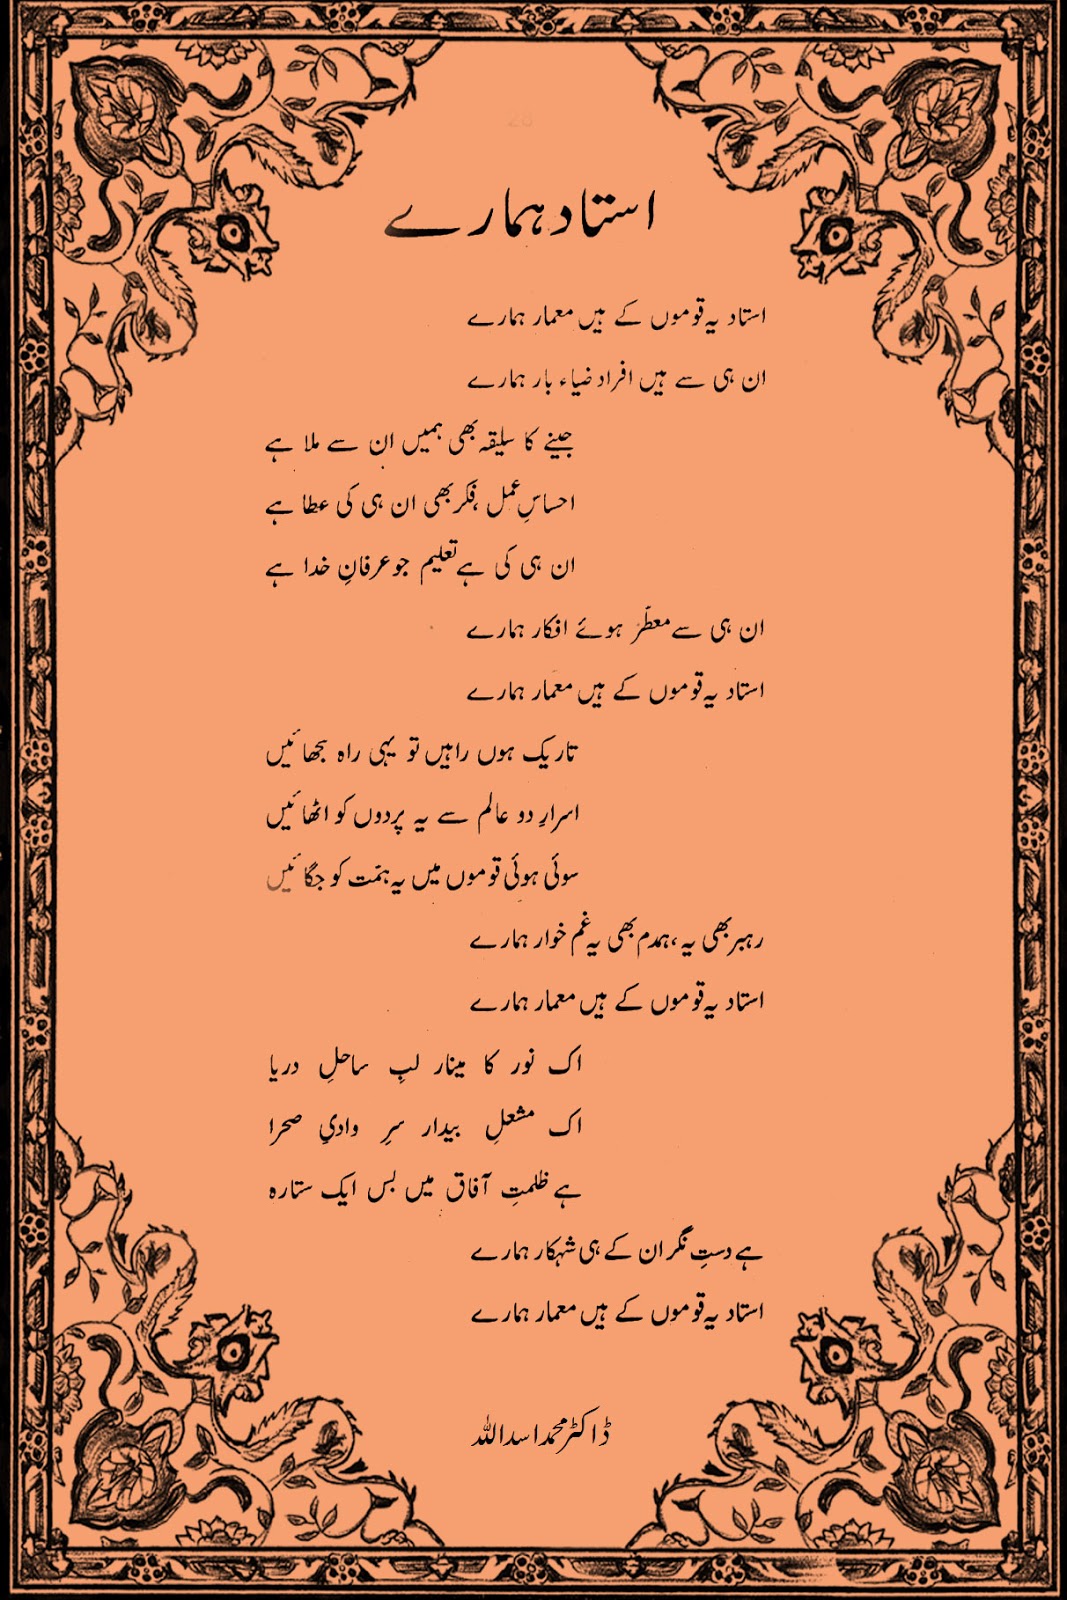 استاد ہمارے
استاد یہ قوموں کے ہیں معمار ہمارے
ان ہی سے ہیں افراد ضیاء بار ہمارے
جینے کا سلیقہ بھی ہمیں ان سے ملا ہے
احساسِ عمل ،فکر بھی ان ہی کی عطا ہے
ان ہی کی ہے تعلیم جو عرفانِ خدا ہے
ان ہی سے معطّر ہوئے افکار ہمارے
استاد یہ قوموں کے ہیں معمار ہمارے
تاریک ہوں راہیں تو یہی راہ سجھائیں
اسرارِ دو عالم سے یہ پردوں کو اٹھائیں
سوئی ہوئی قوموں میں یہ ہمّت کو جگائیں
رہبر بھی یہ ،ہمدم بھی یہ غم خوار ہمارے
استاد یہ قوموں کے ہیں معمار ہمارے
اک نور کا مینار لبِ ساحلِ دریا
اک مشعلِ بیدار سرِ وادیِ صحرا
ہے ظلمتِ آفاق میں بس ایک ستارہ
ہے دستِ نگر ان کے ہی شہکار ہمارے
استاد یہ قوموں کے ہیں معمار ہمارے
ڈاکٹر محمد اسد اللہ